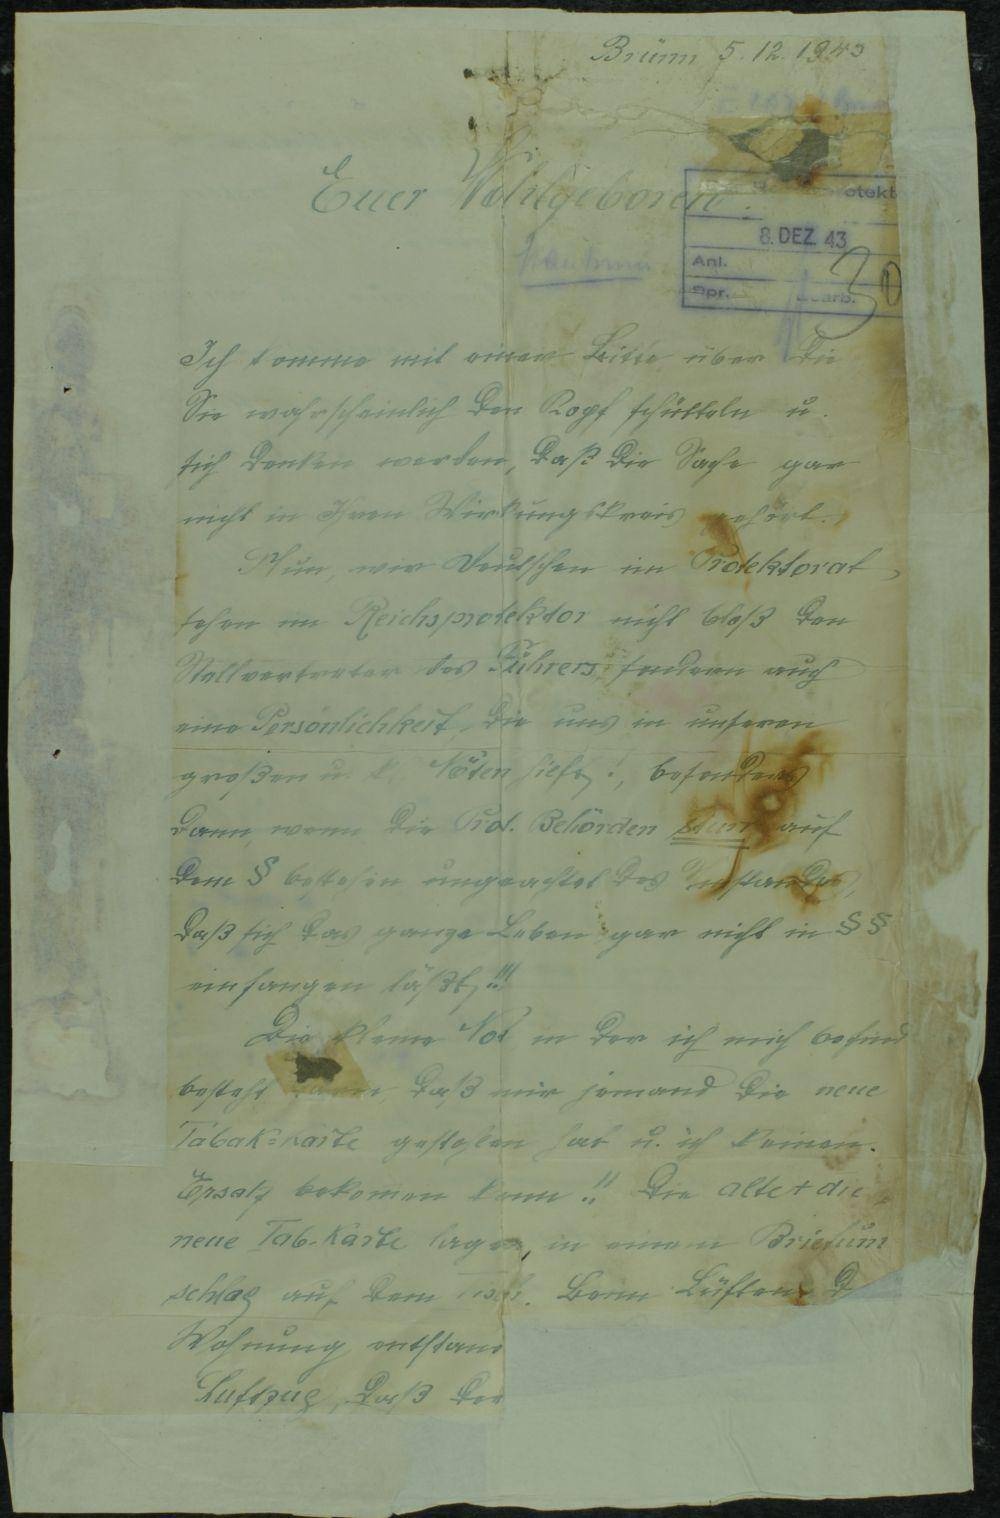 Brünn 5.12.1943
Euer Wohlgeboren!
8. DEZ. 43
Anl.
30
Ich komme mit einer Bitte über die
Sie wahrscheinlich den Kopf schütteln u.
sich denken werden, daß die Sache gar
nicht in Ihren Wirkungskreis gehört.
Nun, wir Deutschen im Protektorat
sehen im Reichsprotektor nicht bloß den
Stellvertreter des Führers, sondern auch
eine Persönlichkeit, die uns in unseren
großen u. kl. Nöten hilft!, besonders
dann, wenn die Prot. Behörden auf
dem § bestehen ungeachtet des Umstandes,
daß sich das ganze Leben gar nicht in §§
einfangen läßt!!!
Die kleine Not in der ich mich befind
besteht darin, daß mir jemand die neue
Tabak=Karte gestohlen hat u. ich keinen
Ersatz bekommen kann!! Die alte + die
neue Tab-Karte lagen, in einem Briefum
schlag auf dem Tisch. Beim Lüften d
Wohnung entstand
Luftzug, daß der